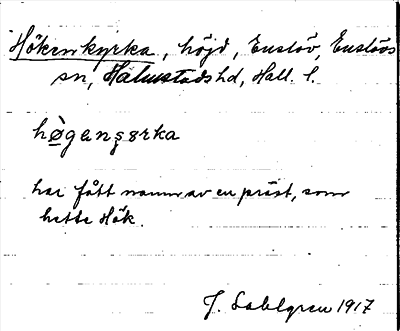 Hökenkyrka, höjd, Enslöv, Enslövs
sn, Halmstads hd, Hall. l.
hògençərka
har fått namn av en präst, som
hette Hök.
J. Sahlgren 1917